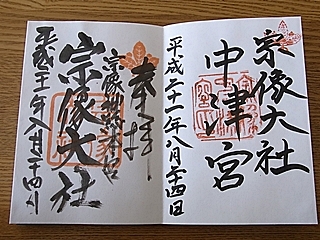 宗像大社
中津宮
平成二十一年八月二十四日
奉拝
宗像大社
平成二十一年八月二十四日